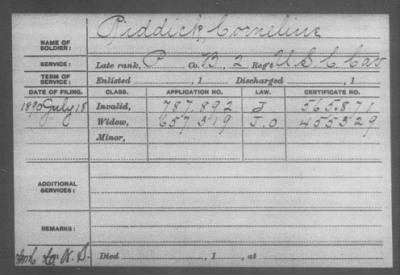 NAME OF SOLDIER: Riddick, Cornelius
SERVICE: Late rank, P Co. B, 2 Reg't U S C Cav
TERM OF SERVICE: Enlisted , 1 Discharged , 1
DATE OF FILING. CLASS. APPLICATION NO. LAW. CERTIFICATE NO.
1890 July 18 Invalid, 787.892 J 565871
Widow, 657319 J.O. 455329
Minor,
ADDITIONAL SERVICES:
REMARKS:
Died , 1 , at